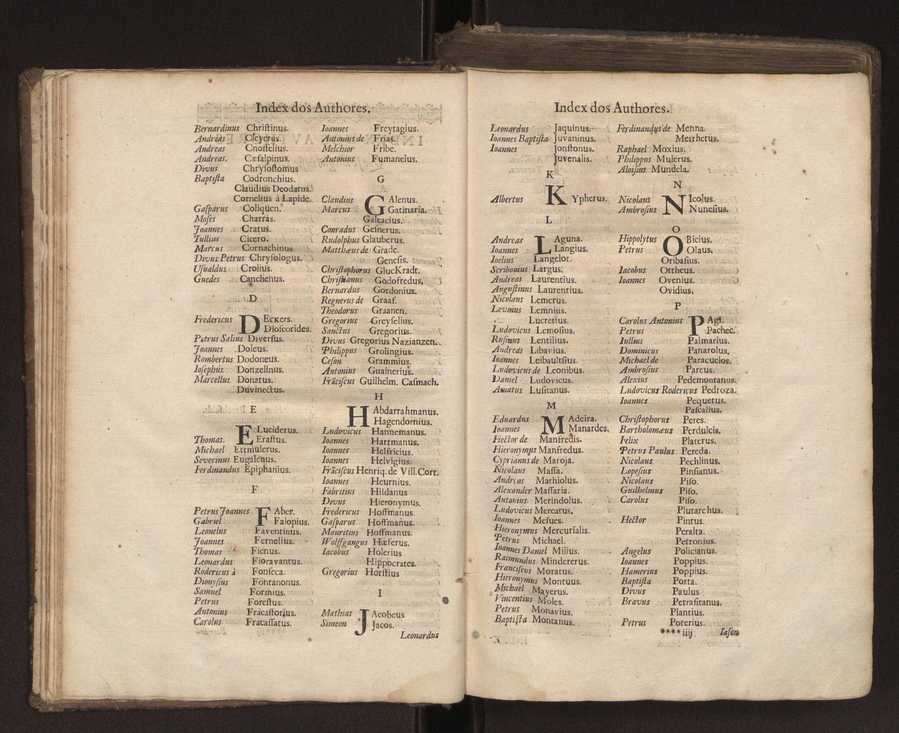 Index dos Authores.
Bernardinus Christinus.
Andreas Cleyerus.
Andreas Cnoffelius.
Andreas. Cæsalpinus.
Divus Chrysostomus
Baptista Codronchius.
Claudius Deodatus.
Cornelius à Lapide.
Gasparus Coliquen.
Moses Charras.
Joannes Cratus.
Tullius Cicero.
Marcus Cornachinus
Divus Petrus Chrysologus.
Usualdus Crolius.
Guedes Canchenus.
D
Fredericus DEckers.
Dioscorides.
Patrus Salius Diversus.
Joannes Doleus.
Rombertus Dodoneus.
Iosephus Donzellnus.
Marcellus Donatus.
Duvinectus.
E
ELuciderus.
Thomas. Erastus.
Michael Etrmulerus.
Severinus Eugalenus.
Ferdinandus Epiphanius.
F
Petrus Joannes FAber.
Gabriel Falopius.
Leonelus Faventinus.
Joannes Fernelius.
Thomas Fienus.
Leonardus Fioravantus.
Rodericus à Fonseca.
Dionysius Fontanonus.
Samuel Formius.
Petrus Forestus.
Antonius Fracastorius.
Carolus Fracassatus.
Ioannes Freytagius.
Antonius de Frias.
Melchior Fribe.
Antonius Fumanelus.
G
Claudius GAlenus.
Marcus Gatinaria.
Galeacius.
Conradus Gesnerus.
Rudolphus Glauberus.
Matthæus de Grade.
Genesis.
Christophorus GlucKradt.
Christianus Godofredus.
Bernardus Gordonius.
Regnerus de Graaf.
Theodorus Graanen.
Gregorius Greyselius.
Sanctus Gregorius.
Divus Gregorius Nazianzen.
Philippus Grolingius.
Ceson Grammius.
Antonius Guainerius.
Frãciscus Guilhelm. Casmach.
H
HAbdarrahmanus.
Hagendornius.
Ludovicus Hannemanus.
Ioannes Hartmanus.
Ioannes Helfricius.
Ioannes Helvigius.
Frãciscus Henriq. de Vill.Cort.
Ioannes Heurnius.
Fabritius Hildanus
Divus Hieronymus.
Fredericus Hoffmanus.
Gasparus Hoffmanus.
Mauritius Hoffmanus.
Wolffgangus Hæferus.
Iacobus Holerius
Hippocrates.
Gregorius Horstius
I
Mathias JAcobeus
Simeon Jacos.
Leonardus
Index dos Authores.
Leonardus Jaquinus.
Ioannes Baptista Juvatinus.
Ioannes Jonstonus.
Juvenalis.
K
Albertus KYpherus.
L
Andreas LAguna.
Ioannes Langius.
Ioelius Langelot.
Scribonius Largus.
Andreas Laurentius.
Augustinus Laurentius.
Nicolaus Lemerus.
Lævinus Lemnius.
Lucretius.
Ludovicus Lemosius.
Rufinus Lentilius.
Andreas Libavius.
Ioannes Leibaultsius.
Ludovicus de Leonibus.
Daniel Ludovicus.
Amatus Lusitanus.
M
Eduardus MAdeira.
Ioannes Manardes.
Hector de Manfredis.
Hieronymus Manfredus.
Cyprianus de Maroja.
Nicolaus Massa.
Andreas Mathiolus.
Alexander Massaria.
Antonius Merindolus.
Ludovicus Mercatus.
Ioannes Mesues.
Hieronymus Mercurialis.
Petrus Michael.
Ioannes Daniel Milius.
Raimundus Mindererus.
Franciscus Moratus.
Hieronymus Montuus.
Michael Mayerus.
Vincentius Moles.
Petrus Monavius.
Baptista Montanus.
Ferdinandus de Menna.
Mesrhetus.
Raphael Moxius.
Philippus Mulerus.
Aloisius Mundela.
N
Nicolaus NIcolus.
Ambrosius Nunesius.
O
Hippolytus OBicius.
Petrus Olaus.
Oribasius.
Iacobus Ottheus.
Ioannes Ovenius.
Ovidius.
P
Carolus Antonius PAgi.
Petrus Pachec.
Iulius Palmarius.
Dominicus Panarolus.
Michael de Paracuelos.
Ambrosius Pareus.
Alexius Pedemontanus.
Ludovicus Rodericus Pedroza.
Ioannes Pequetus.
Pascasius.
Christophorus Peres.
Bartholomæus Perdulcis.
Felix Platerus.
Petrus Paulus Pereda.
Nicolaus Pechlinus.
Lopesius Pinsianus.
Nicolaus Piso.
Guilhelmus Piso.
Carolus Piso.
Plutarchus.
Hector Pintus.
Peralta.
Petronius.
Angelus Policianus.
Ioannes Poppius.
Hamerius Poppius.
Baptista Porta.
Divus Paulus
Bravus Petrafitanus.
Plantius.
Petrus Poterius.
****iiij Iason